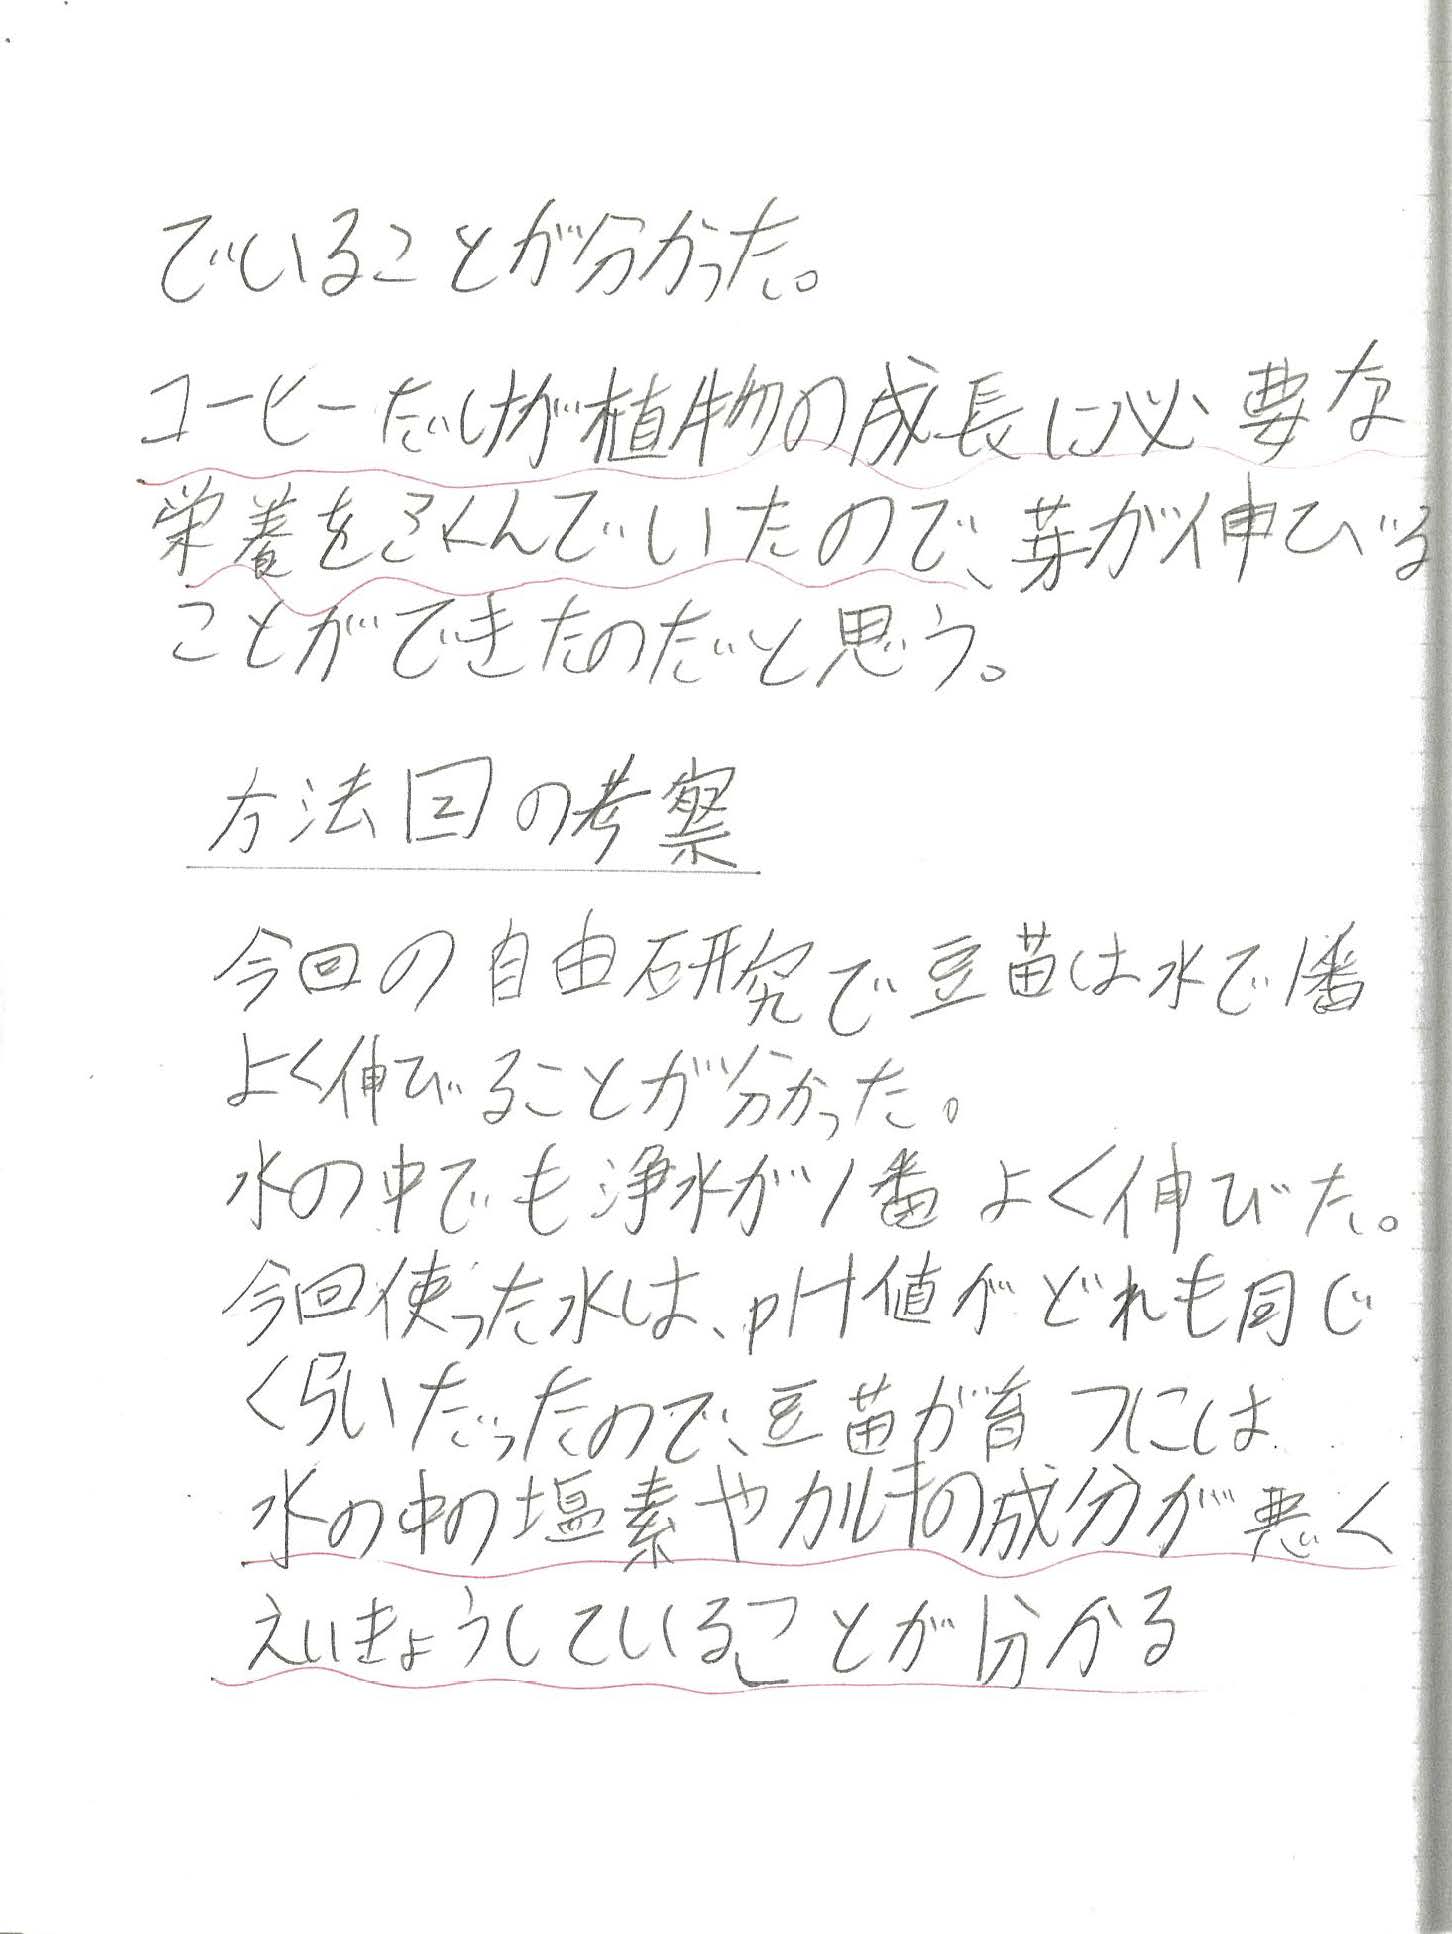 でいることが分かった。
コーヒーだけが植物の成長に必要な
栄養をふくんでいたので、芽が伸びる
ことができたのだと思う。
方法2の考察
今回の自由研究で豆苗は水で1番
よく伸びることが分かった。
水の中でも浄水が1番よく伸びた。
今回使った水は、pH値がどれも同じ
くらいだったので、豆苗が育つには
水の中の塩素やカルキの成分が悪く
えいきょうしていることが分かる